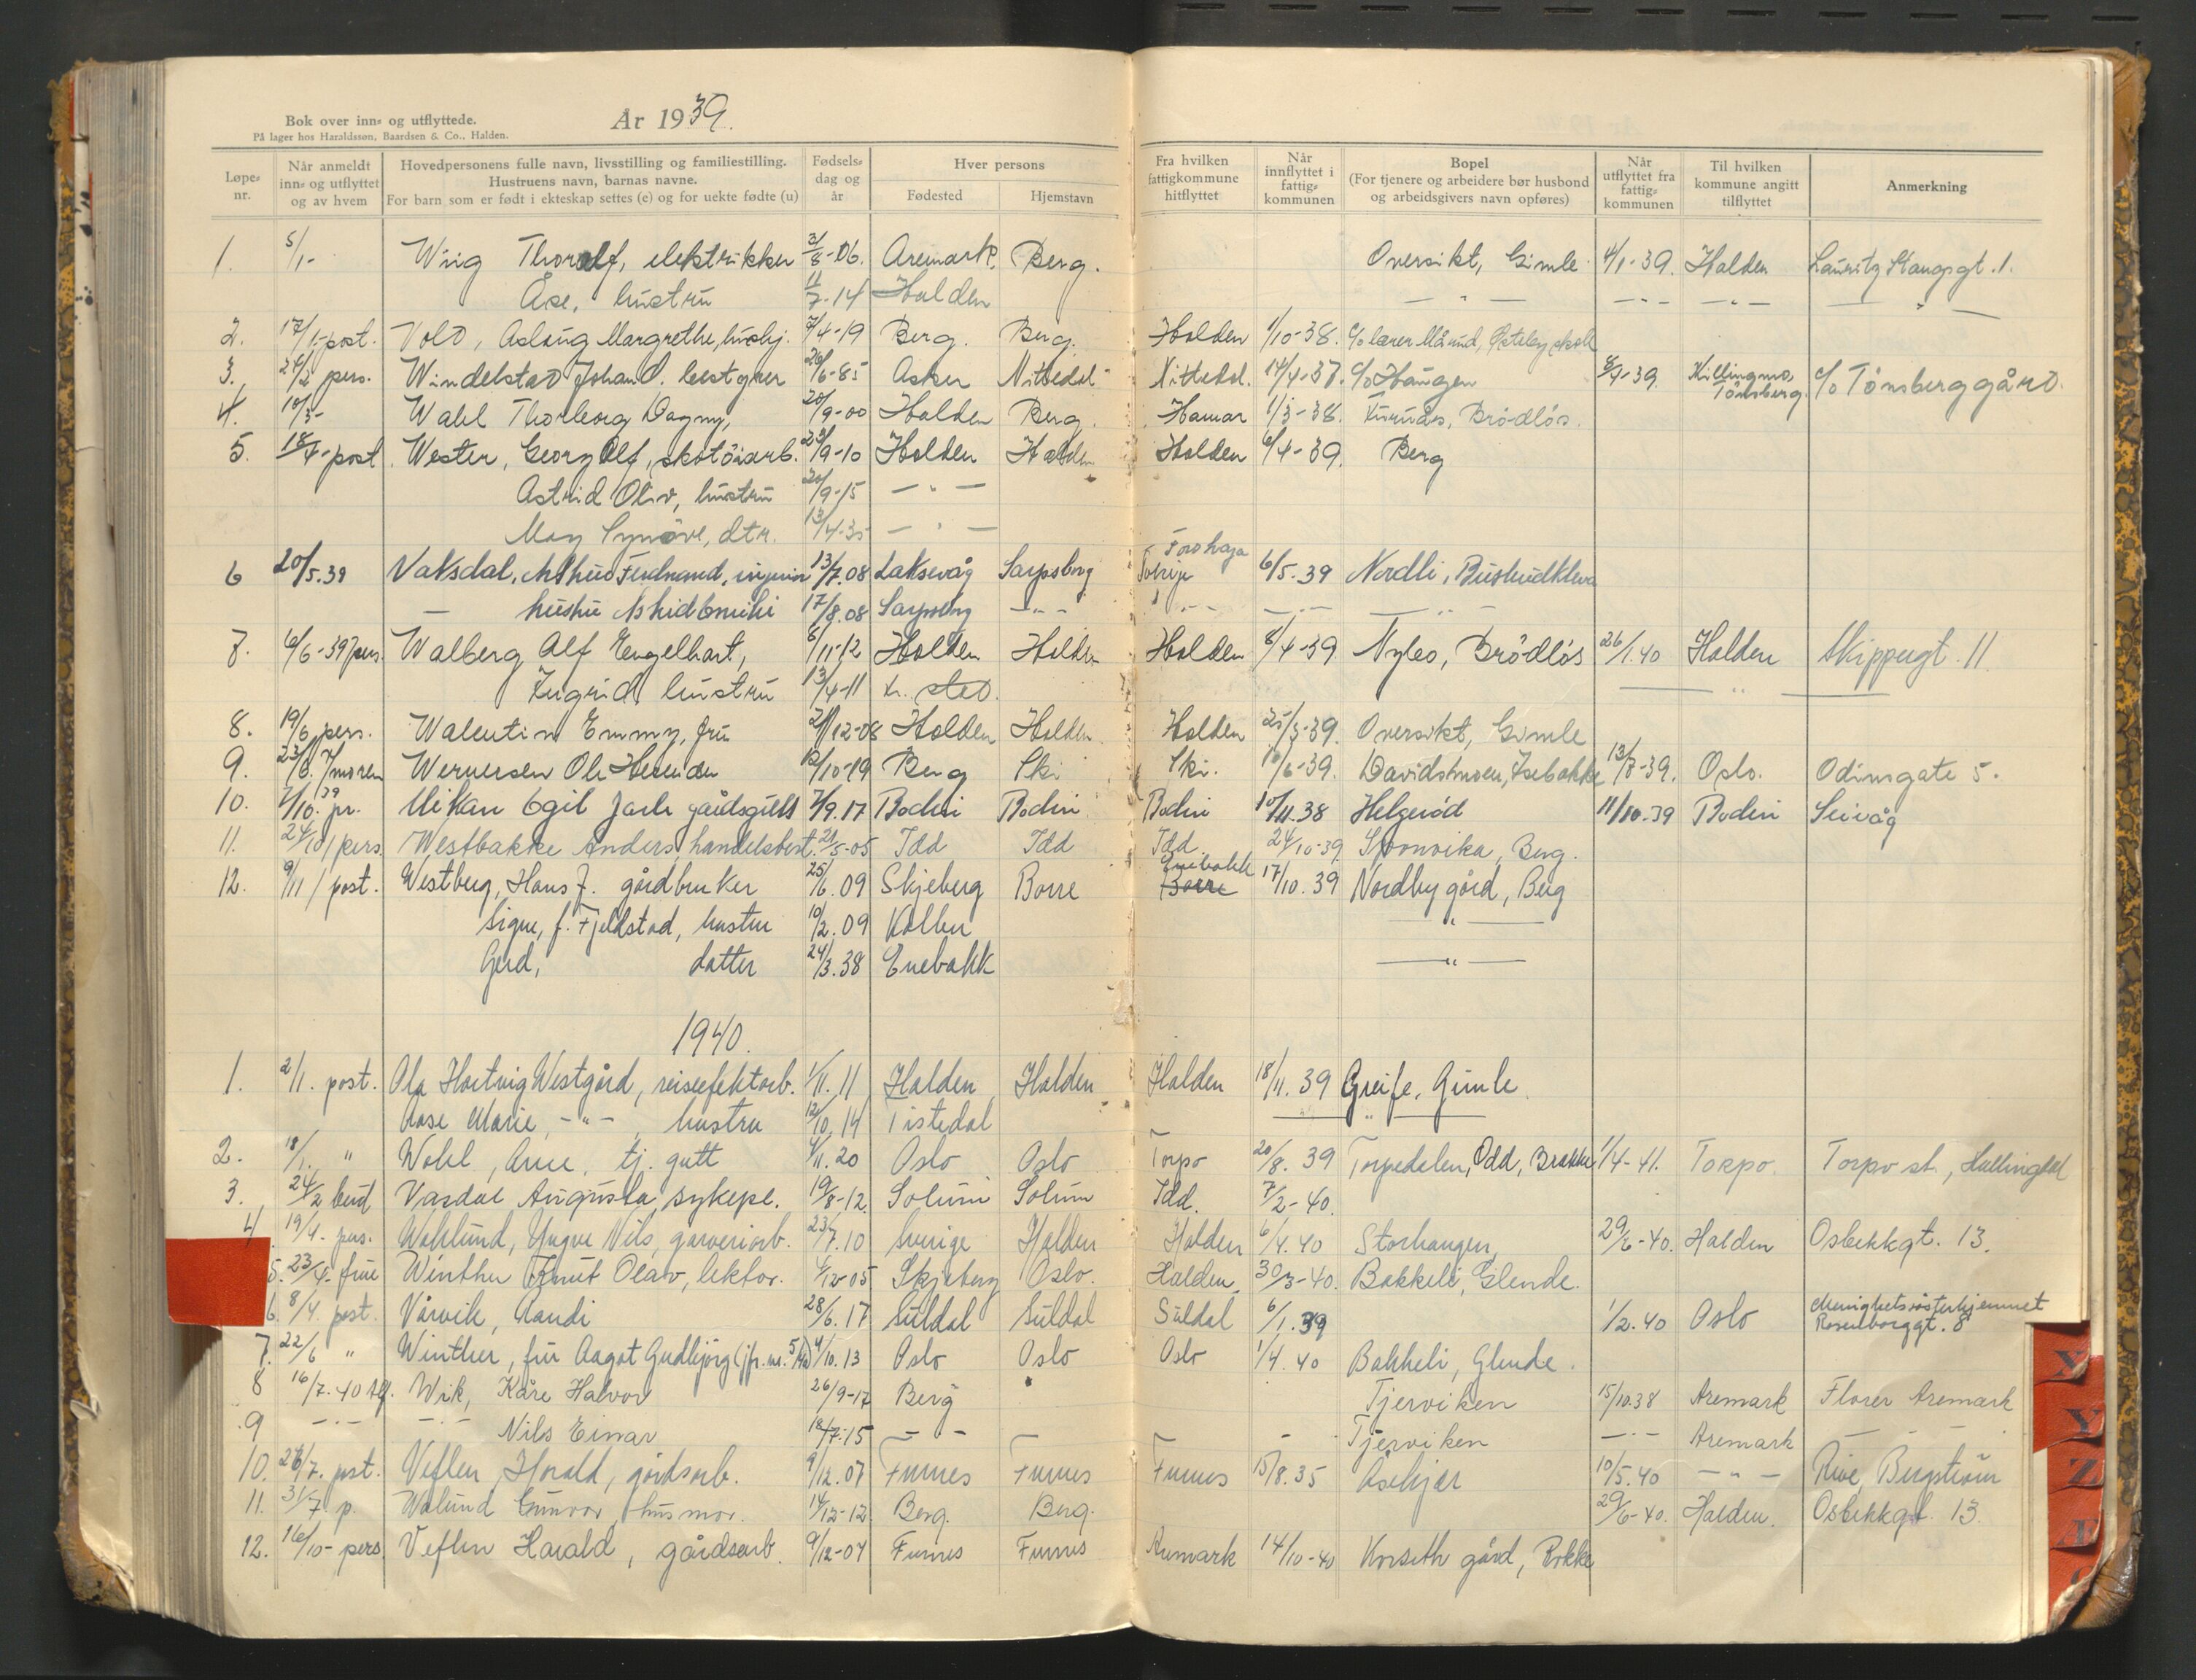 Bok over inn- og utflyttede.
På lager hos Haraldssøn, Baardsen & Co., Halden.
År 1939.
Løpe-nr.
Når anmeldt inn- og utflyttet og av hvem
Hovedpersonens fulle navn, livsstilling og familiestilling. Hustruens navn, barnas navne. For barn som er født i ekteskap settes (e) og for uekte fødte (u)
Fødsels-dag og år
Hver persons
Fødested
Hjemstavn
Fra hvilken fattigkommune hitflyttet
Når innflyttet i fattig-kommunen
Bopel (For tjenere og arbeidere bør husbond og arbeidsgivers navn opføres)
Når utflyttet fra fattig-kommunen
Til hvilken kommune angitt tilflyttet
Anmerkning
1. 5/1- Wiig Thoralf, elektriker 3/8-06. Aremark. Berg. Oversikt, Gimle 4/1-39. Halden Lauritz Stangsgt. 1.
Åse, hustru 11/7-14 Halden — " — — " — — " — — " —
2. 17/1-post. Vold, Aslaug Margrethe, hushj. 7/4-19 Berg. Berg. Halden 1/10-38. c/o lærer Mårud, Østeby skole
3. 24/2 pers. Windelstad Johan O. bestyrer 26/6-85 Asker Nittedal Nittedal. 14/4-37. c/o Haugen 8/4-39. Killingmo, Tønsberg. c/o Tönsberg gård.
4. 10/3- Wahl Thorborg Dagny, 20/9-00 Halden Berg. Hamar 1/3-38. Furunes, Brödlös.
5. 18/4-post. Wester, Georg Olf, skotöiarb. 23/9-10 Halden Halden Halden 6/4-39. Berg
Astrid Oliv, hustru 20/9-15 — " —
May Synöve, dtr. 13/4-35 — " —
6 20/5.39 Vaksdal, Arthur Ferdinand, ingeniør 13/7.08 Laksevåg Sarpsborg Forshaga Sverige 6/5.39 Nordli, Buskudkleva
— hustru Astrid Emilie 17/8.08 Sarpsborg — " — — " — — " — — " —
7. 6/6-39 pers. Walberg Alf Engelhart, 6/11-12 Halden Halden Halden 8/4-39. Nyleo, Brödlös 26/1.40 Halden Skippergt. 11
Ingrid, hustru 13/4-11 Kr.sted. — " —
8. 19/6 pers. Walentin Emmy, fru 21/12-08 Halden Halden Halden 25/3-39. Oversikt, Gimle
9. 23/6. moren Wernersen Ole Herman 12/10-19 Berg Ski Ski. 10/6-39. Davidsmoen, Isebakke 13/7-39. Oslo. Odinsgate 5.
10. 7/10.39 pr. Vikan Egil Jarle gårdsgutt 7/9.17 Bodin Bodin Bodin 10/11.38 Helgerød 11/10.39 Bodin Seivåg
11. 24/10/pers. Westbakke Anders, handelsbest. 21/5-05 Idd Idd Idd. 24/10-39. Svonvika, Berg.
12. 9/11/post. Westberg, Hans J. gårdbruker 25/6.09 Skjeberg Borre Enebakk Borre 17/10.39 Nordby gård, Berg
Signe, f. Fjeldstad, hustru 10/2.09 Kolbu — " —
Gerd, datter 24/3.38 Enebakk — " —
1940.
1. 2/1. post. Ola Hartvig Westgård, reiseefektarb. 1/11.11 Halden Halden Halden 18/11.39 Greife, Gimle
Aase Marie, — " —, hustru 12/10.14 Tistedal — " —
2. 18/1. " Wohl, Arne, tj. gutt 4/11.20 Oslo Oslo Torpo 20/8.39 Torpedalen, Odd, Brekke 1/4-41. Torpo. Torpo st., Hallingdal
3. 24/2 bud Vasdal Augusta, sykepl. 19/8-12. Solum Solum Idd. 7/2-40.
4. 19/4. pers. Wahlund, Yngve Nils, garveriarb. 23/7.10 Sverige Halden Halden 6/4.40 Storhaugen, 29/6-40. Halden Osbekkgt. 13.
5. 23/4- frue Winther Knut Olav, lektor. 4/12-05 Skjeberg Oslo. Halden. 30/3-40. Bakkeli, Glende.
6. 8/4. post. Vårvik, Randi 28/6.17 Suldal Suldal Suldal 6/1.39 1/2.40 Oslo Menighetssøsterhjemmet Rosenborggt. 8
7. 22/6 " Winther, fru Aagot Gudbjørg (jfr. nr. 5/40) 4/10.13 Oslo Oslo Oslo 1/4.40 Bakkeli, Glende.
8 16/7.40 Wik, Kåre Halvor 26/9-17 Berg Tjerviken 15/10.38 Aremark Florer Aremark
9 — " — — " — Nils Einar 18/7-15 — " — Tjerviken — " — Aremark — " —
10. 26/7. post. Veflen Harald, gårdsarb. 9/12.07 Furnes Furnes Furnes 15/8.35 Åsekjær 10/5.40 — " — Rive, Bergström
11. 31/7 p. Walund Gunvor, husmor. 14/12-12 Berg. Berg. 29/6-40. Halden. Osbekkgt. 13
12. 16/10- pers. Veflen Harald, gårdsarb. 9/12-07 Furnes Furnes Aremark 14/10-40 Korseth gård, Rokke
X
Y
Z
Æ